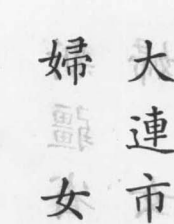 大連市
婦女